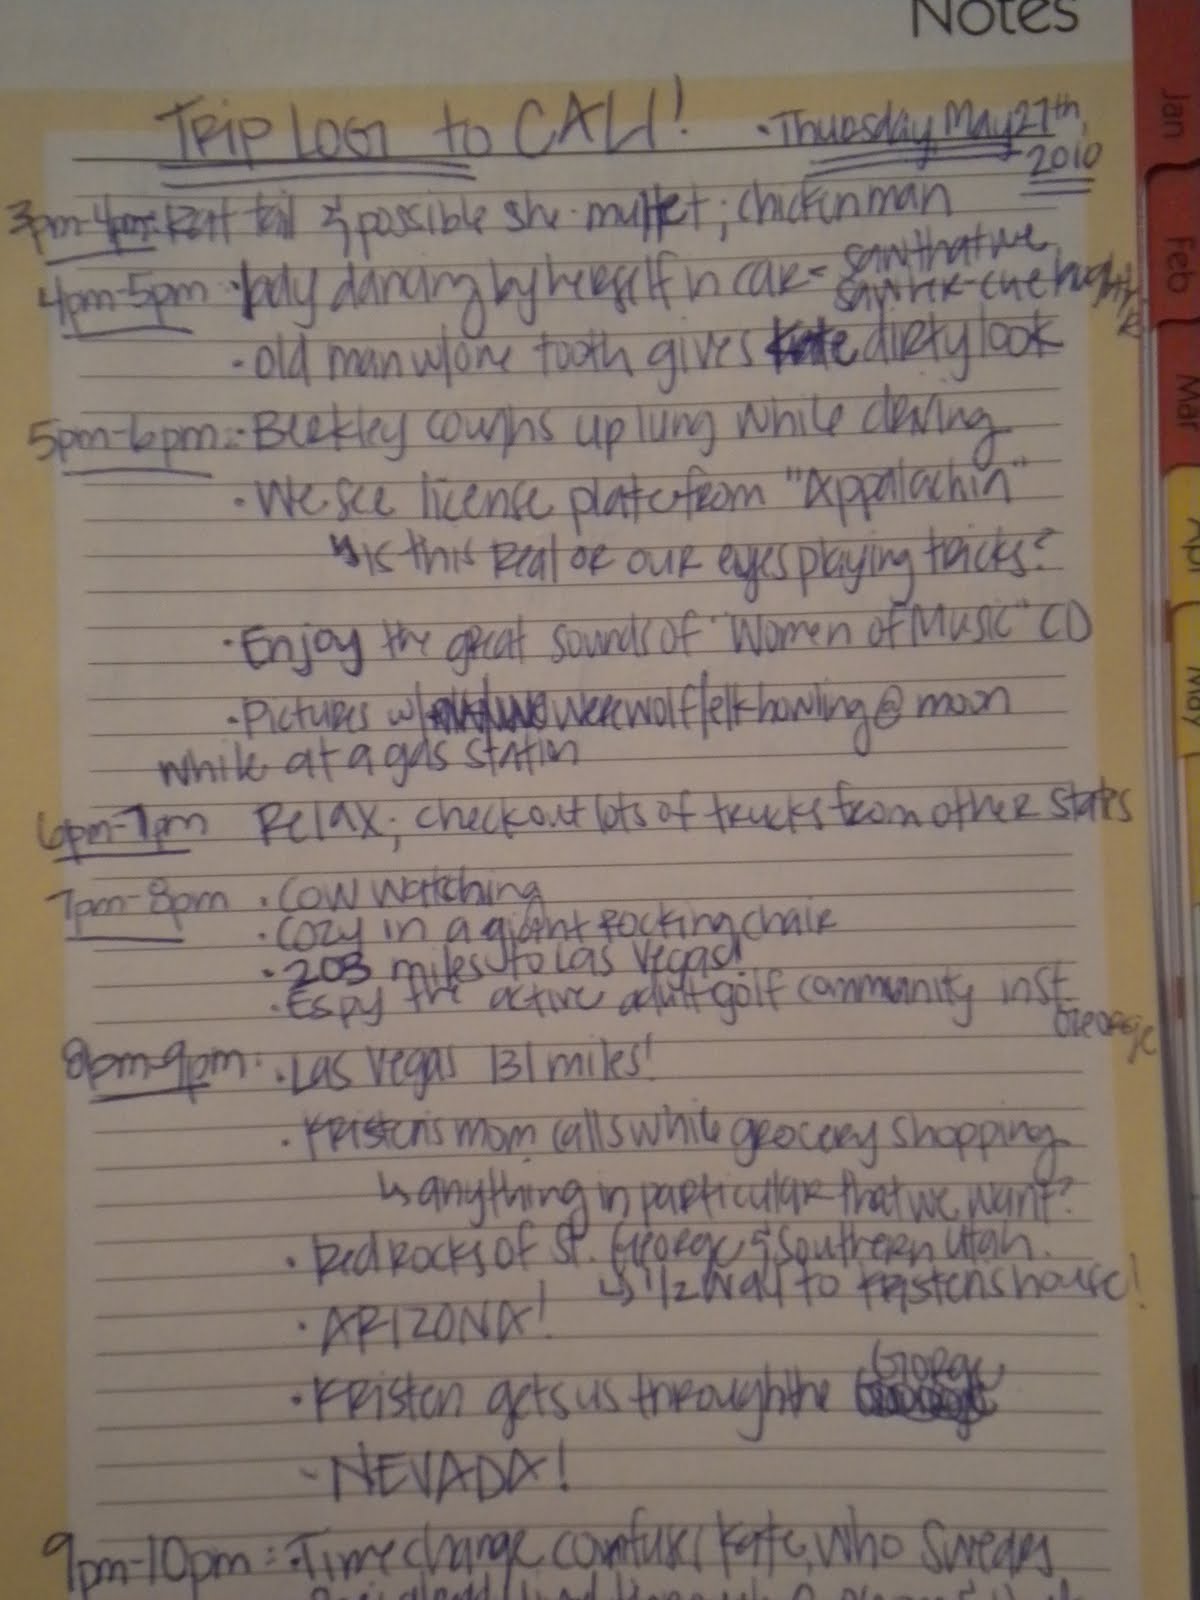 Notes
Jan
Feb
Mar
Apr
May
TRIP LOG to CALI! · Thursday May 27th,
2010
3pm-4pm: Rat tail & possible she-mullet; chicken man
4pm-5pm · lady dancing by herself in car - saw that we
saw her-cue
· old man w/one tooth gives Kate dirty look
5pm-6pm: · Berkley coughs up lung while driving
· We see license plate from "Appalachin"
↳ is this real or our eyes playing tricks?
· Enjoy the great sounds of "Women of Music" CD
· Pictures w/ werewolf/elk howling @ moon
while at a gas station
6pm-7pm Relax; checkout lots of trucks from other states
7pm-8pm · Cow watching
· Cozy in a giant rocking chair
· 203 miles to Las Vegas!
· Espy the active adult golf community in St.
George
8pm-9pm: · Las Vegas 131 miles!
· Kristen's mom calls while grocery shopping
↳ anything in particular that we want?
· Red Rocks of St. George & Southern Utah.
↳ 1/2 way to Kristen's house!
· ARIZONA!
· Kristen gets us through the Gorge
- NEVADA!
9pm-10pm: · Time change confuses Kate, who swears